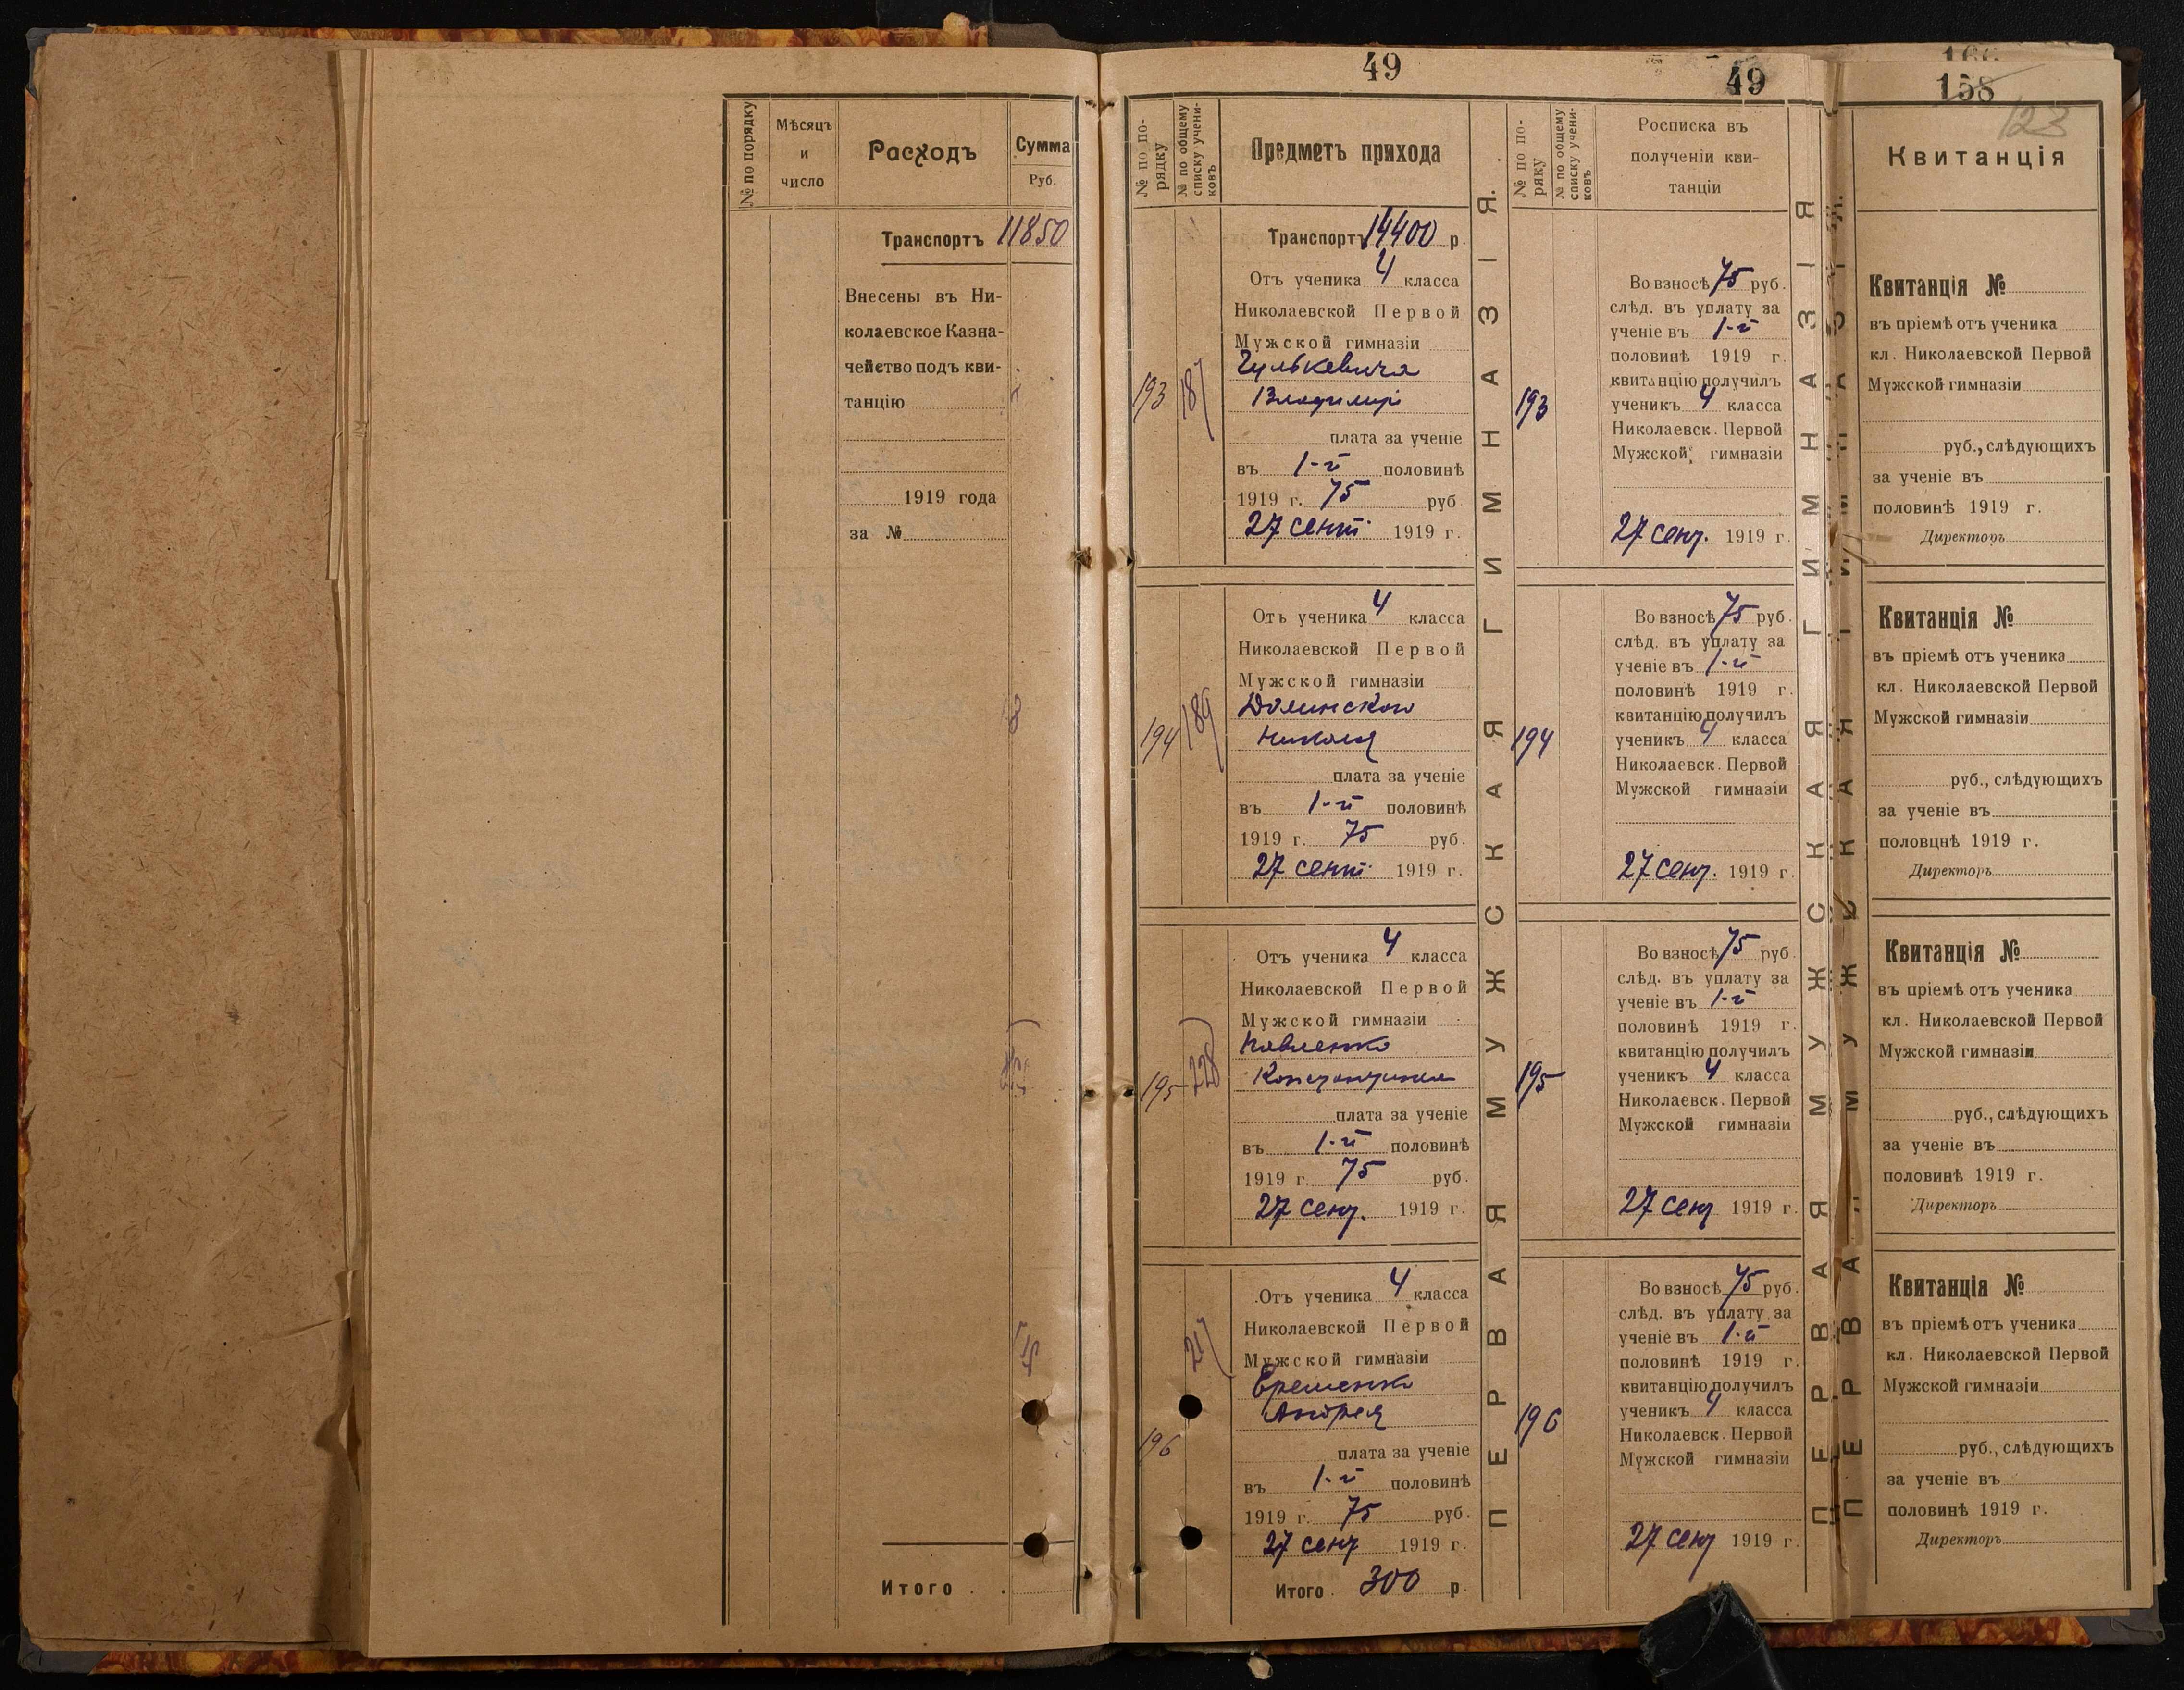 № по порядку
Мѣсяцъ
и
число
Расходъ
Сумма
Руб.
Транспортъ 11850
Внесены въ Ни-
колаевское Казна-
чейство подъ кви-
танцію
1919 года
за №
Итого . .
49
№ по по-
рядку
№ по общему
списку учени-
ковъ
Предметъ прихода
Транспортъ 14400 р.
193
187
Отъ ученика 4 класса
Николаевской Первой
Мужской гимназіи
Гулькевича
Владимір
плата за ученіе
въ 1-й половинѣ
1919 г. 75 руб
27 сент. 1919 г.
194
189
Отъ ученика 4 класса
Николаевской Первой
Мужской гимназіи
Долинского
Николая
плата за ученіе
въ 1-й половинѣ
1919 г. 75 руб.
27 сент. 1919 г.
195
228
Отъ ученика 4 класса
Николаевской Первой
Мужской гимназіи
Павленко
Константина
плата за ученіе
въ 1-й половинѣ
1919 г. 75 руб.
27 сент. 1919 г.
196
217
Отъ ученика 4 класса
Николаевской Первой
Мужской гимназіи
Еременко
Андрея
плата за ученіе
въ 1-й половинѣ
1919 г. 75 руб.
27 сент 1919 г.
Итого . 300 р.
ПЕРВАЯ МУЖСКАЯ ГИМНАЗІЯ.
49
№ по по-
ряку
№ по общему
списку учени-
ковъ
Росписка въ
полученіи кви-
танціи
193
Во взносѣ 75 руб.
слѣд. въ уплату за
ученіе въ 1-й
половинѣ 1919 г.
квитанцію получилъ
ученикъ 4 класса
Николаевск. Первой
Мужской гимназіи
27 сент. 1919 г.
194
Во взносѣ 75 руб.
слѣд. въ уплату за
ученіе въ 1-й
половинѣ 1919 г.
квитанцію получилъ
ученикъ 4 класса
Николаевск. Первой
Мужской гимназіи
27 сент. 1919 г.
195
Во взносѣ 75 руб
слѣд. въ уплату за
ученіе въ 1-й
половинѣ 1919 г.
квитанцію получилъ
ученикъ 4 класса
Николаевск. Первой
Мужской гимназіи
27 сент 1919 г.
196
Во взносѣ 75 руб.
слѣд. въ уплату за
ученіе въ 1-й
половинѣ 1919 г.
квитанцію получилъ
ученикъ 4 класса
Николаевск. Первой
Мужской гимназіи
27 сент 1919 г.
ПЕРВАЯ МУЖСКАЯ ГИМНАЗІЯ
158
123
Квитанція
Квитанція №
въ пріемѣ отъ ученика
кл. Николаевской Первой
Мужской гимназіи
руб., слѣдующихъ
за ученіе въ
половинѣ 1919 г.
Директоръ
Квитанція №
въ пріемѣ отъ ученика
кл. Николаевской Первой
Мужской гимназіи
руб., слѣдующихъ
за ученіе въ
половцнѣ 1919 г.
Директоръ
Квитанція №
въ пріемѣ отъ ученика
кл. Николаевской Первой
Мужской гимназіи
руб., слѣдующихъ
за ученіе въ
половинѣ 1919 г.
Директоръ
Квитанція №
въ пріемѣ отъ ученика
кл. Николаевской Первой
Мужской гимназіи
руб., слѣдующихъ
за ученіе въ
половинѣ 1919 г.
Директоръ